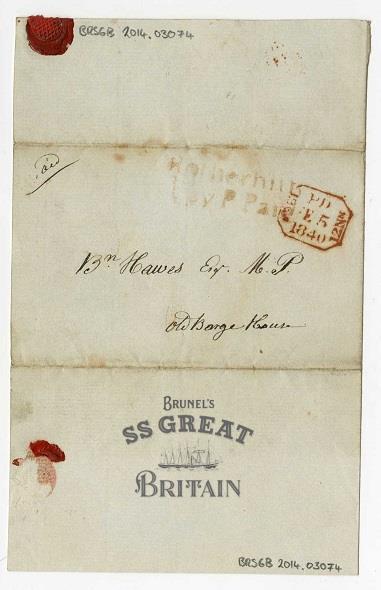 BRSGB 2014.03074
Paid
Rotherhith
1 py P Paid
PD
FE 5
1840
12Nn
Bn Hawes Esq. M.P.
Old Barge House
BRUNEL'S
SS GREAT
BRITAIN
BRSGB 2014.03074